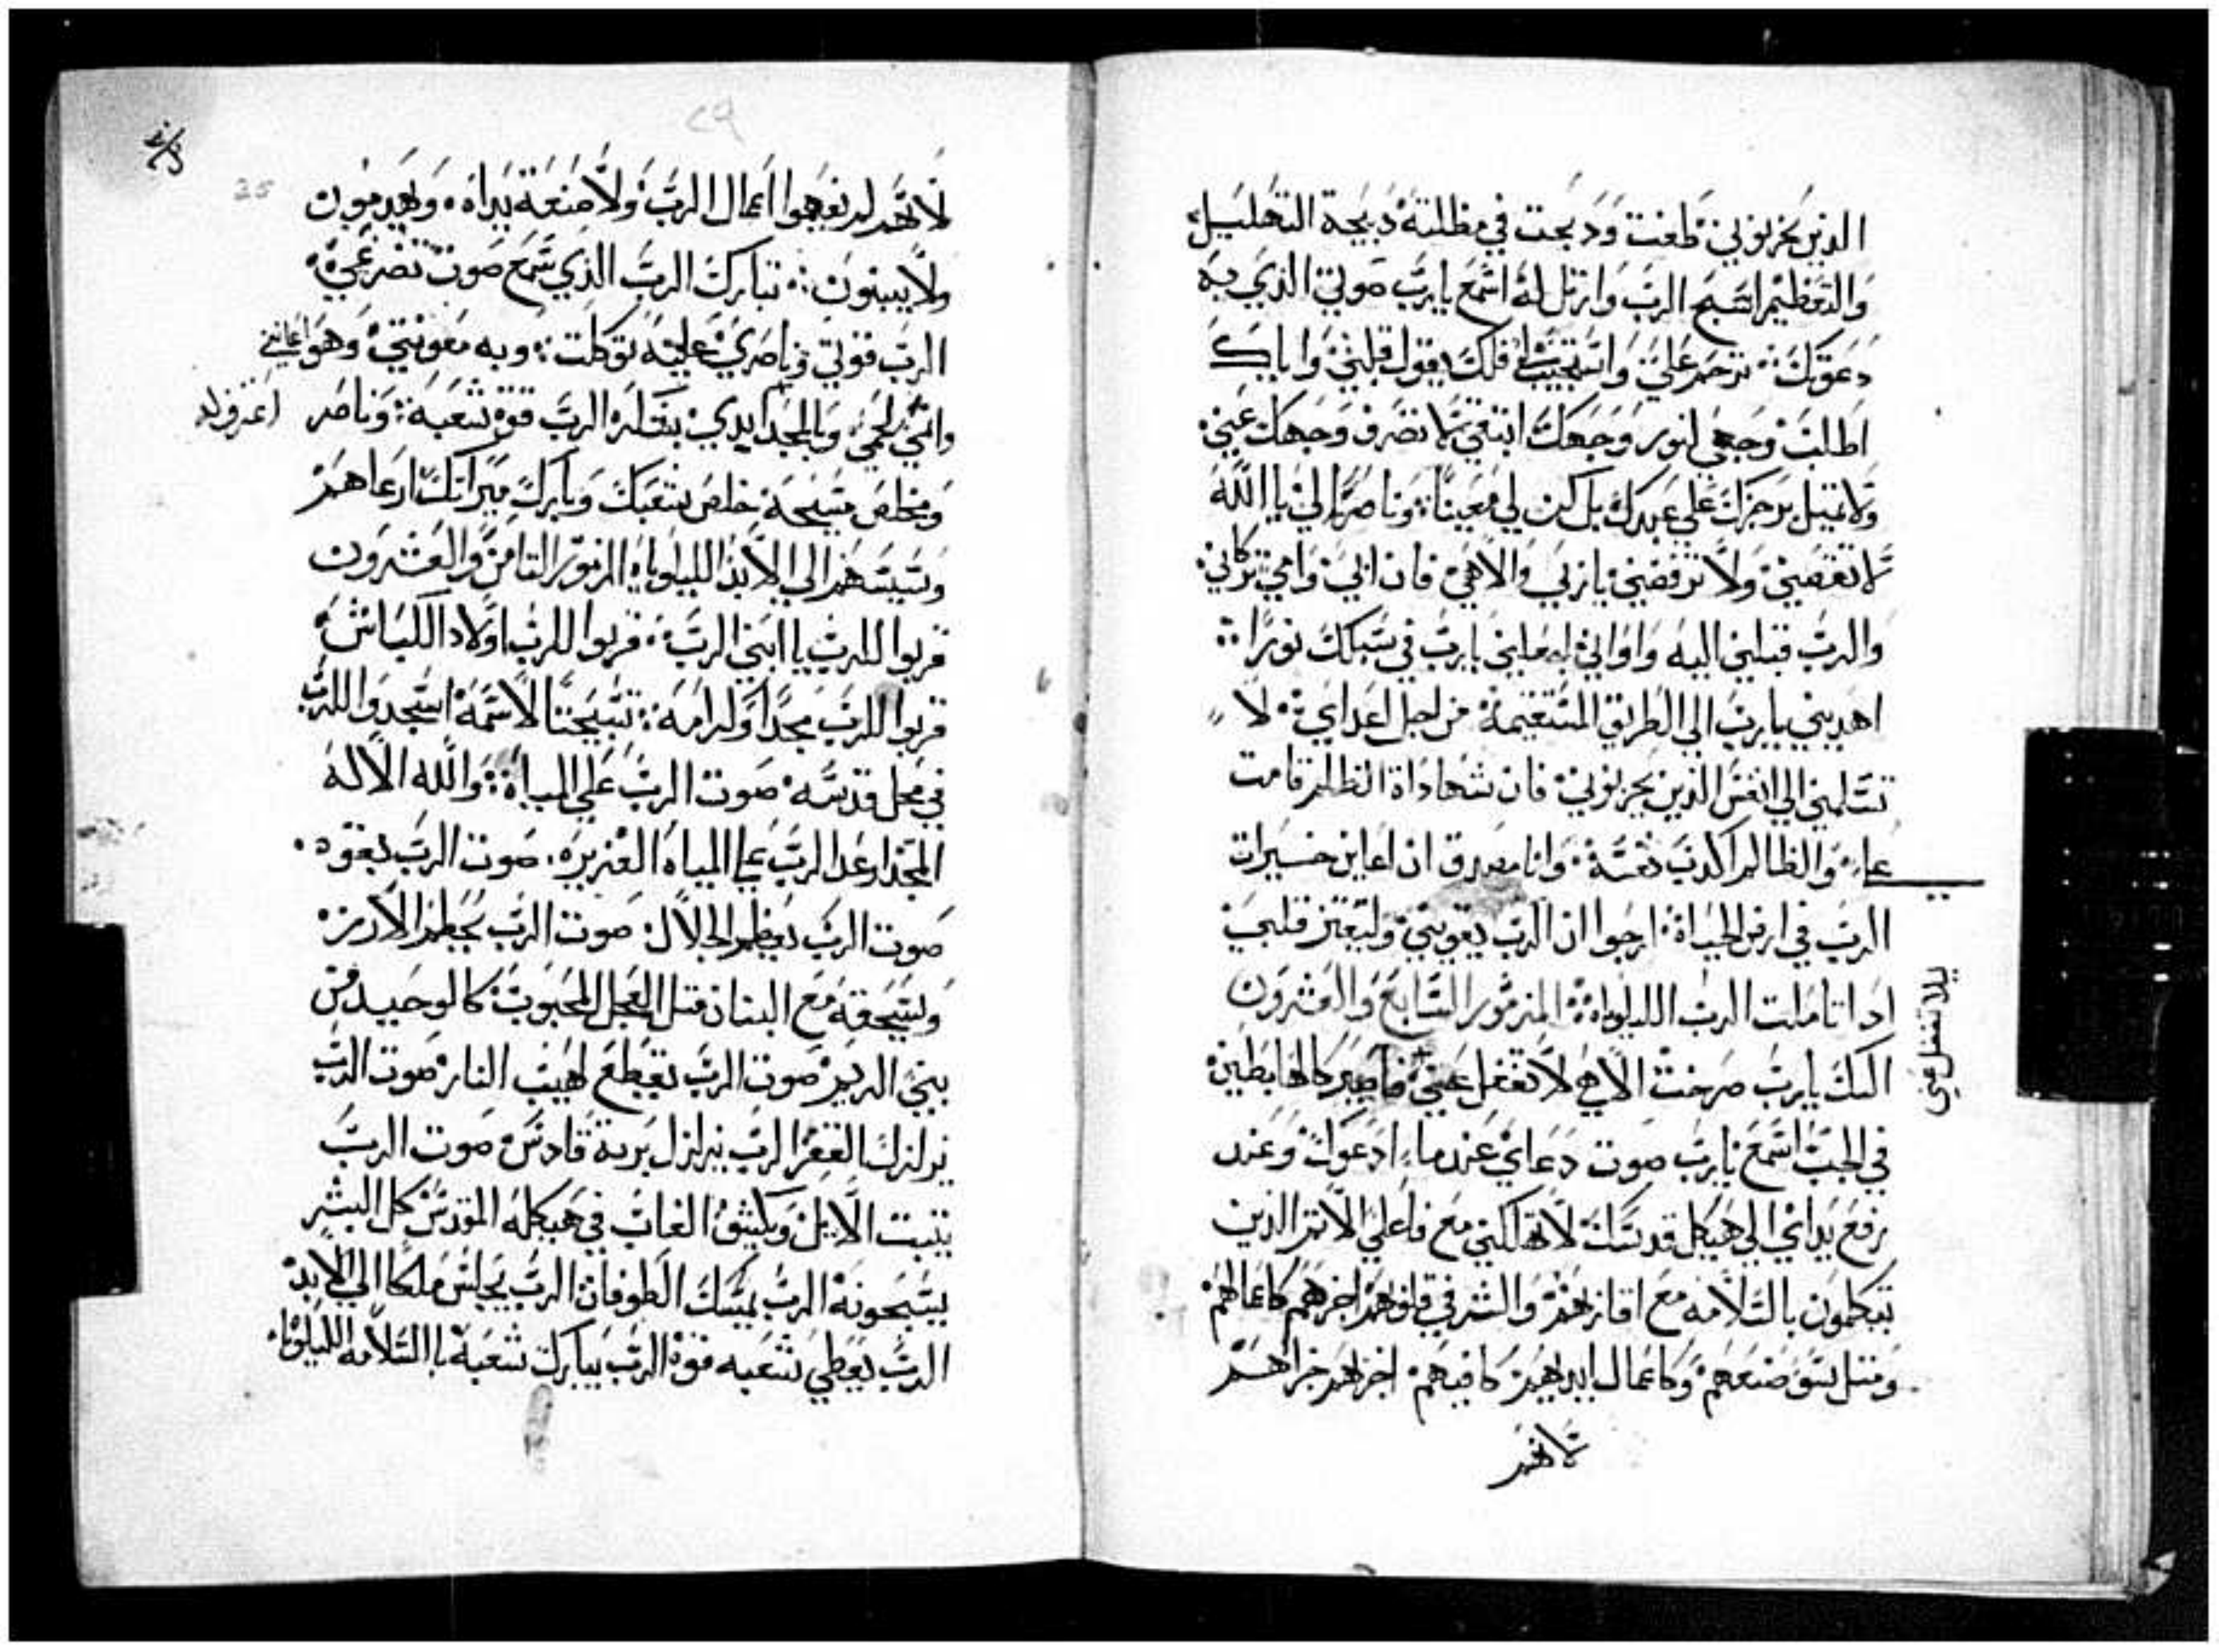 الذين يحزنوني طفت ودبحت في مظلته دبيحة التهليل
والتعظيم اسبح الرب وارتل له اسمع يا رب صوتي الذي به
دعوتك ترحم علي واستجيب لي فلك يقول قلبي واياك
اطلب وجهي لنور وجهك ابتغي لا تصرف وجهك عني
ولا تميل برجزك علي عبدك بل كن لي معينا وناصرا لي يا الله
لا تقصيني ولا ترفضني يا ربي والاهي فان ابي وامي تركاني
والرب قبلني اليه واواني اهديني يا رب في سبلك نورا
اهديني يا رب الي الطريق المستقيمة من اجل اعداي لا
تسلمني الي انفس الذين يحزنوني فان شهاداة الظلم قامت
علي والظالم اكدب نفسه وانا مصدق ان اعاين خيرات
الرب في ارض الحياة ارجوا ان الرب يقويني وليعتز قلبي
ادا تاملت الرب الليلوياه المزمور السابع والعشرون
اليك يا رب صرخت الاهي لا تغفل عني فاصير كالهابطين
في الجب اسمع يا رب صوت دعاي عندما ادعوك وعند
رفع يداي الي هيكل قدسك لا تهلكني مع فاعلي الاتم الذين
يتكلمون بالسلامه مع اقاربهم والشر في قلوبهم اجزهم كاعمالهم
ومتل سو صنعهم وكاعمال ايديهم كافيهم اجزهم جزاهم
لانهم
يلا تغفل عني
٢٩
25
لانهم لم يفهموا اعمال الرب ولا صنعة يداه ويهدمون
ولا يبينون تبارك الرب الذي سمع صوت تضرعي
الرب قوتي وناصري عليه توكلت وبه معونتي وهو اعانني
وانمي لحمي وبالمجد ايدي بنقله الرب قوة شعبه وناصر
اعترف له
ومخلص مسيحه خلص شعبك وبارك ميراتك ارعاهم
وتبتهم الي الابد الليلوياه المزمور التامن والعشرون
قربوا للرب يا ابني الرب قربوا للرب اولاد الكباش
قربوا للرب مجدا وكرامه تسبيحتا لاسمه اسجدوا للرب
في محل قدسه صوت الرب علي المياه والله الاله
المجد ارعد الرب علي المياه الغزيره صوت الرب بقوه
صوت الرب بعظم الجلال صوت الرب يحطم الارز
ويسحقه مع البنان متل العجل المحبوب كالوحيد من
بيني الريم صوت الرب يقطع لهيب النار صوت الرب
يزلزل القفر الرب يزلزل برية قادس صوت الرب
يتبت الايل ويكشف الغاب في هيكله المقدس كل البشر
يسبحونه الرب يمسك الطوفان الرب يجلس ملكا الي الابد
الرب يعطي شعبه قوة الرب يبارك شعبه باالسلامه الليلوياه